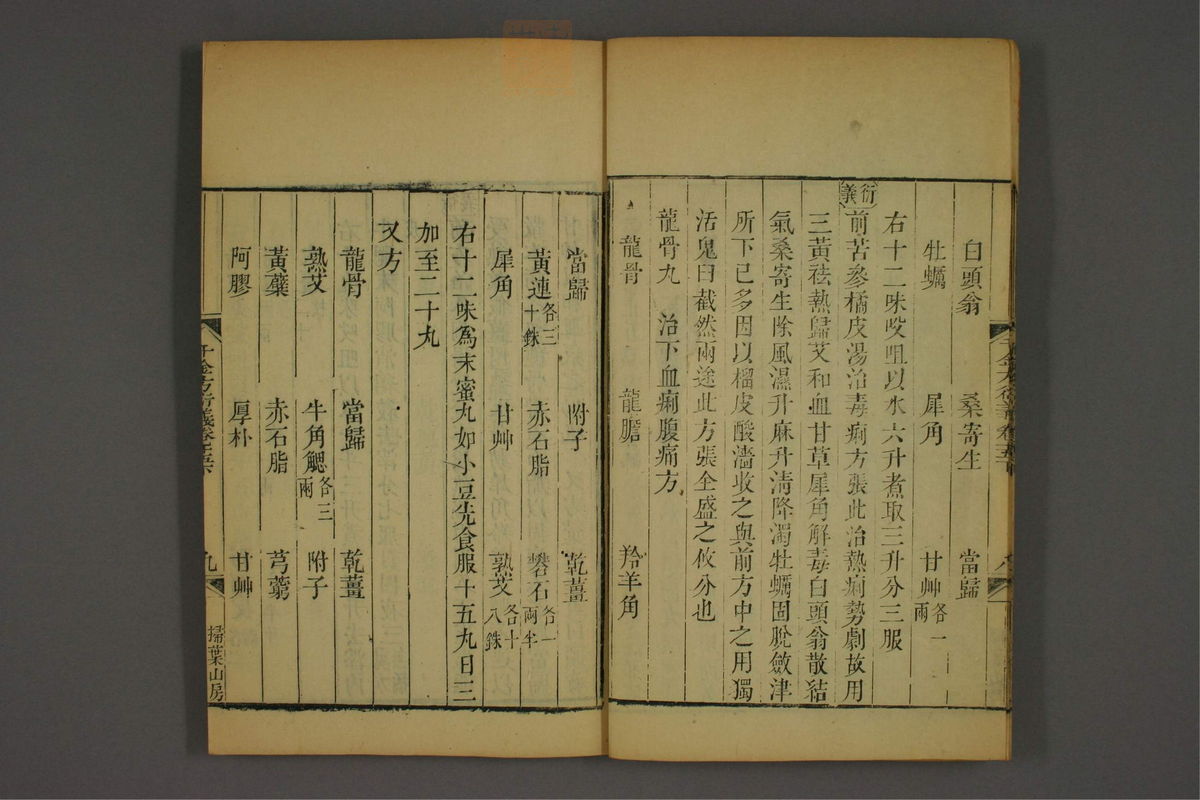 白頭翁 桑寄生 當歸
牡蠣 犀角 甘艸各一兩
右十二味㕮咀以水六升煮取三升分三服
衍義
前苦參橘皮湯治毒痢方張此治熱痢勢劇故用
三黃祛熱歸艾和血甘草犀角解毒白頭翁散結
氣桑寄生除風濕升麻升清降濁牡蠣固脫斂津
所下已多因以榴皮酸濇收之與前方中之用獨
活鬼臼截然兩途此方張全盛之攸分也
龍骨丸 治下血痢腹痛方
龍骨 龍膽 羚羊角
當歸 附子 乾薑
黃連各三十銖 赤石脂 礬石各一兩半
犀角 甘艸 熟艾各十八銖
右十二味為末蜜丸如小豆先食服十五丸日三
加至二十丸
又方
龍骨 當歸 乾薑
熟艾 牛角䚡各三兩 附子
黃蘗 赤石脂 芎藭
阿膠 厚朴 甘艸
千金方衍義卷十五下 九
掃葉山房